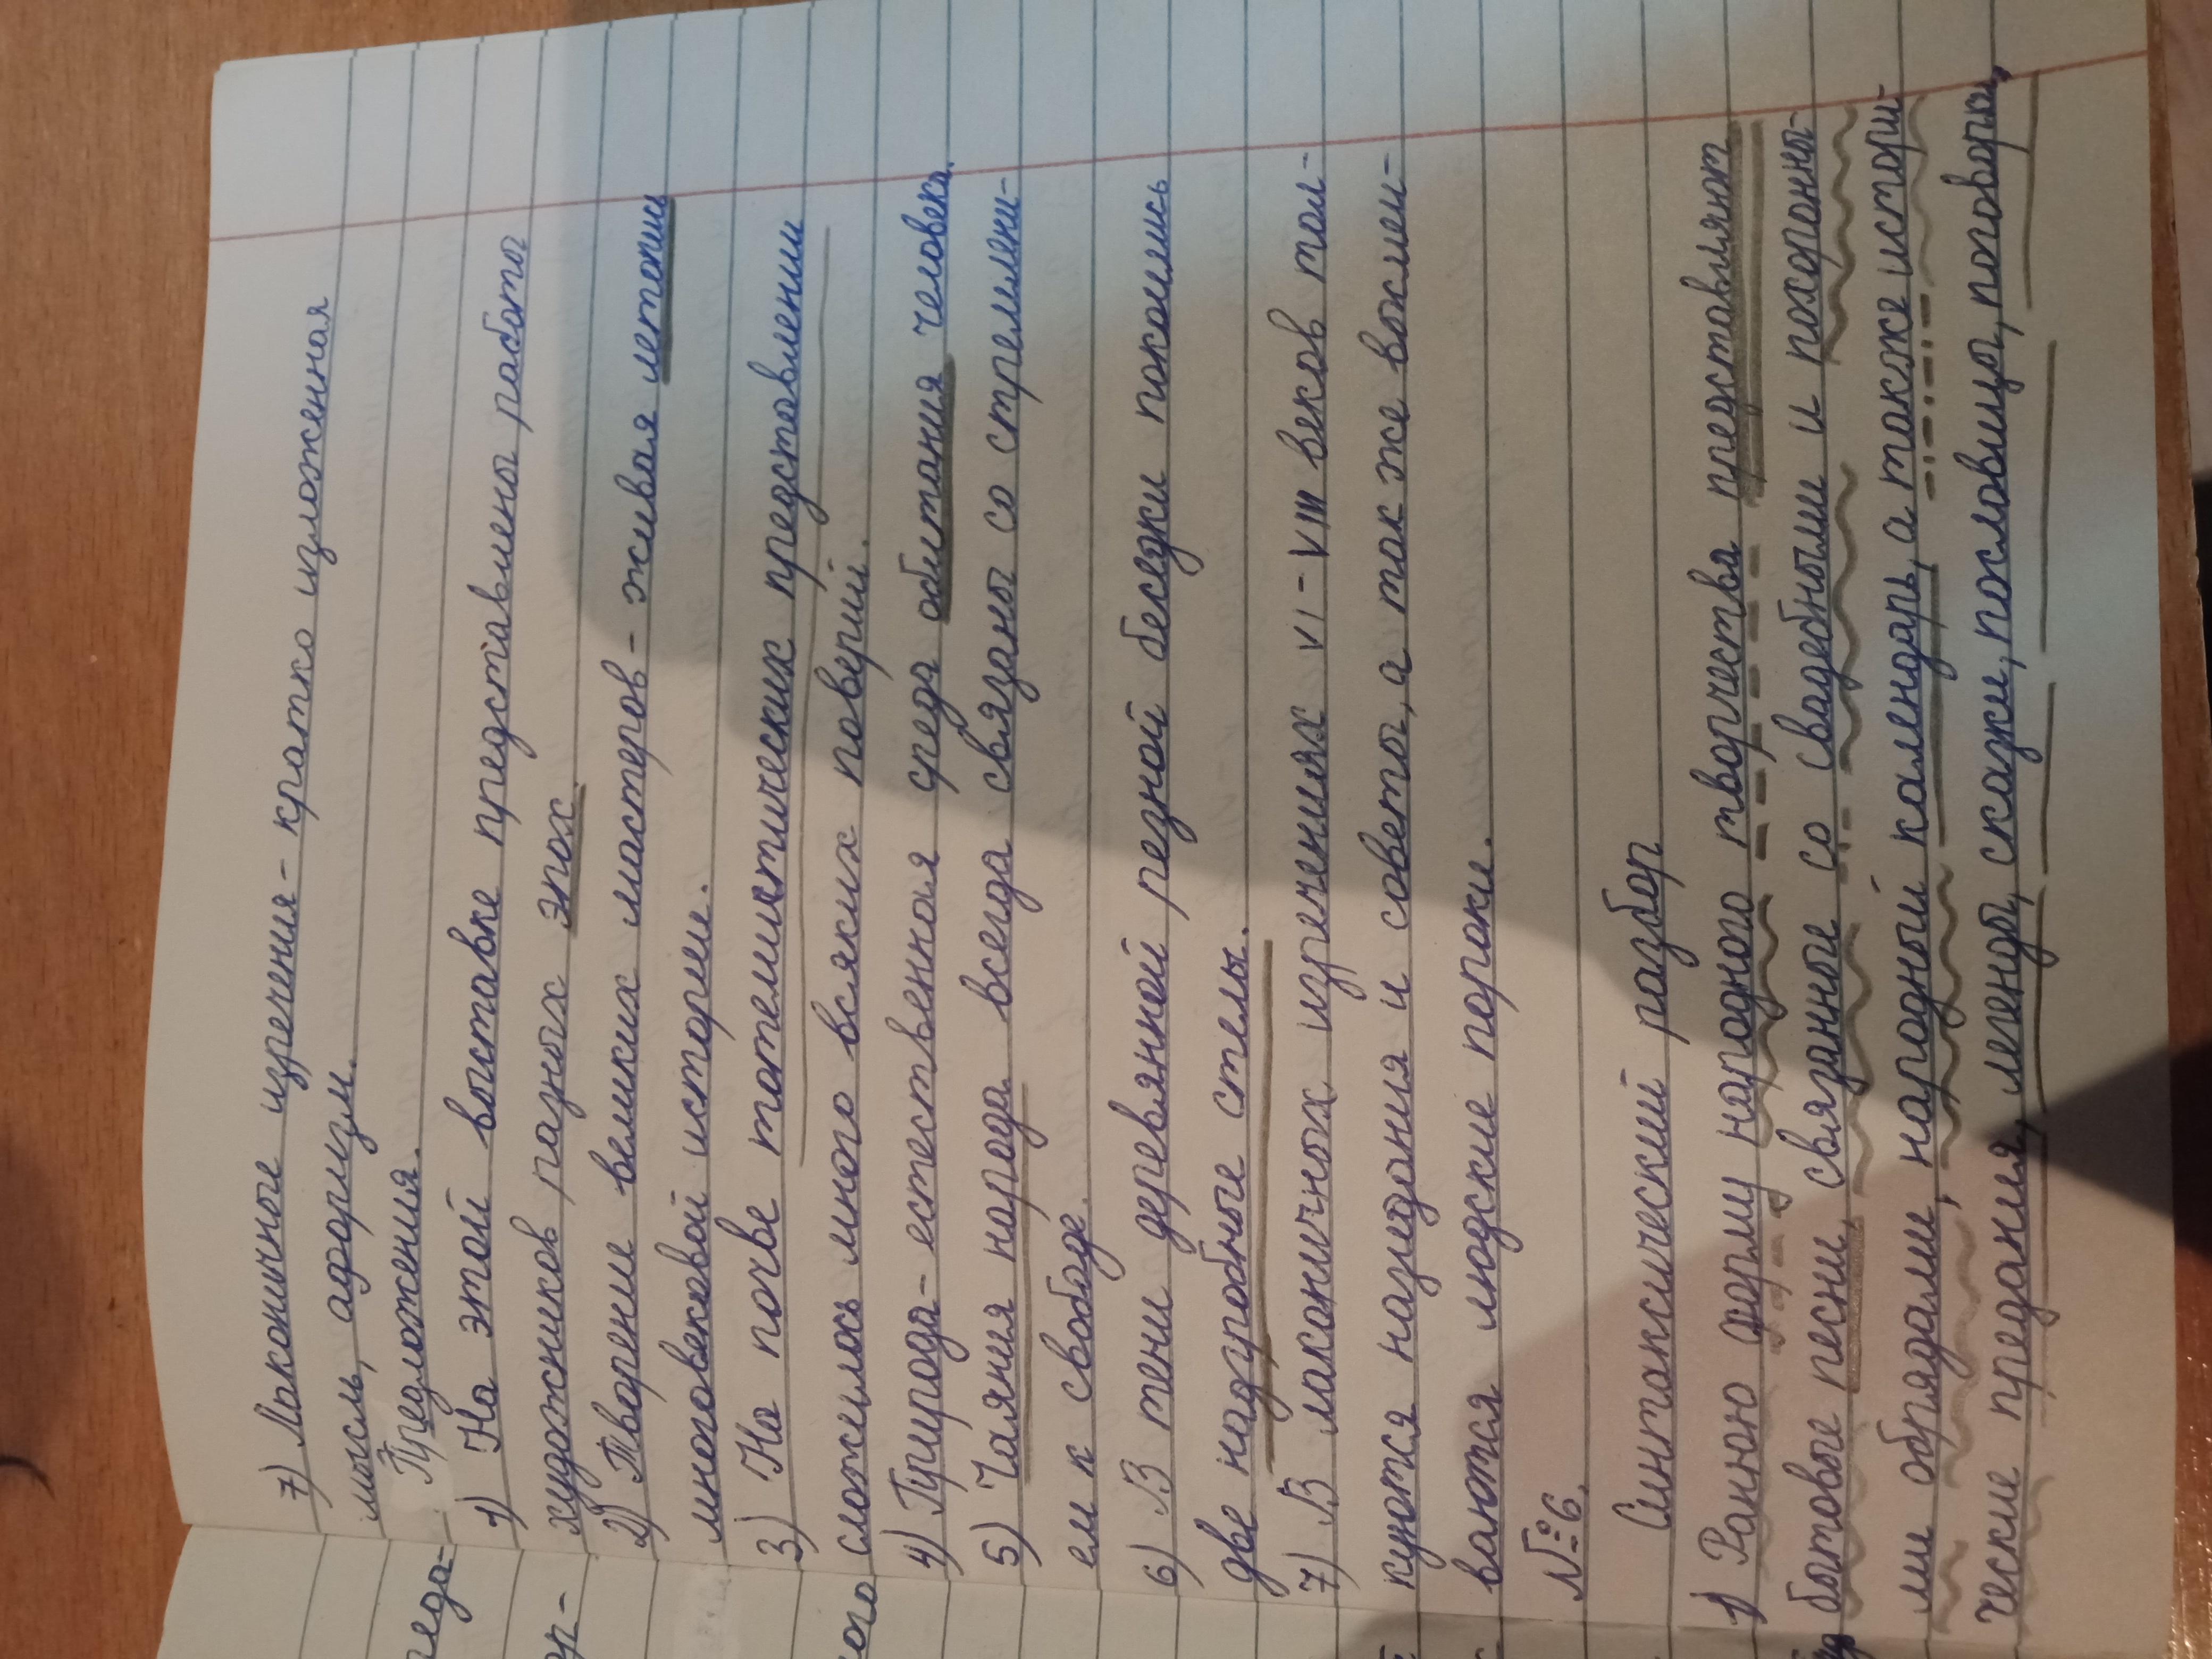 7) Лаконичные изречения- кратко изложенная
мысль, афоризм.
Предложения.
1) На этой выставке представлены работы
художников разных эпох
2) Творение великих мастеров- живая летопись
многовековой истории.
3) На почве тотемистических представлений
сложилось много всяких поверий.
4) Природа- естественная среда обитания человека.
5) Чаяния народа всегда связаны со стремлени-
ем к свободе.
6) В тени деревянной резной беседки покоились
две надгробные стелы.
7) В лаконичных изречениях VI-VIII веков тол-
куются назидания и советы, а так же высмеи-
ваются людские пороки.
№6.
Синтаксический разбор
1) Раннюю форму народного творчества представляют
бытовые песни, связанные со свадебными и похоронны-
ми обрядами, народный календарь, а также истори-
ческие предания, легенды, сказки, пословицы, поговорки,
реда-
ор-
ого